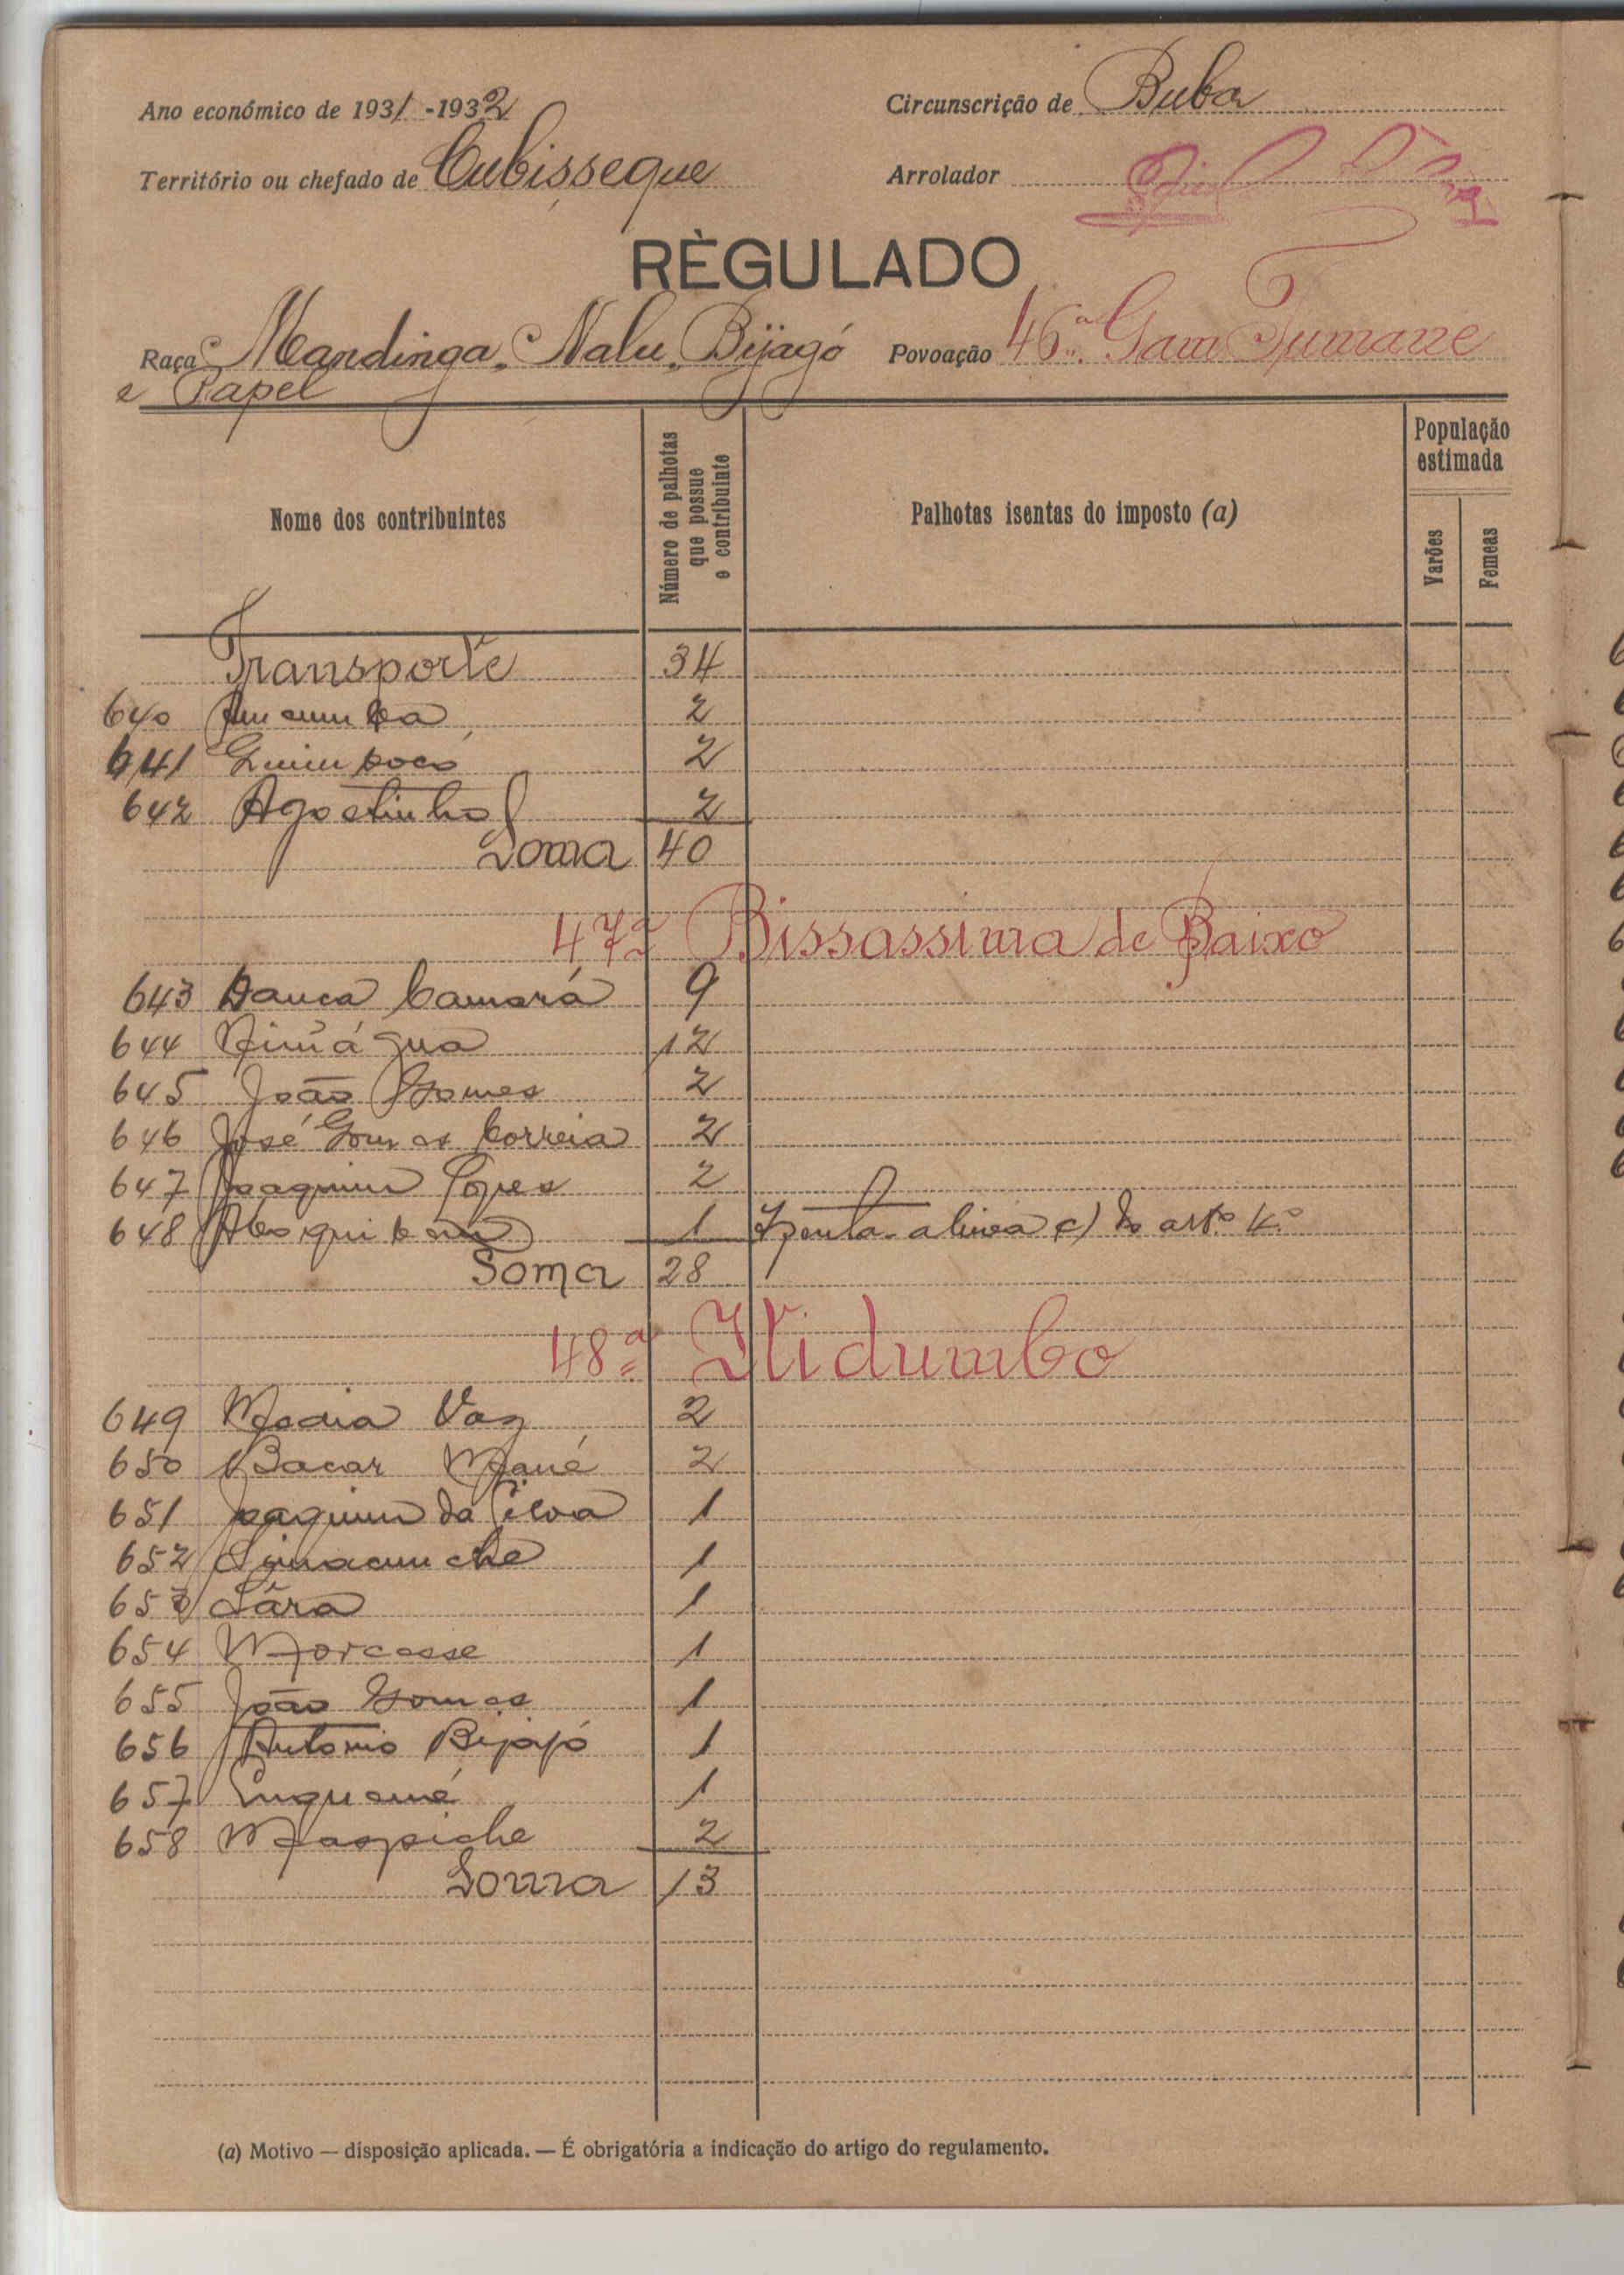 Ano económico de 1931-1932
Circunscrição de Buba
Território ou chefado de Cubisseque
Arrolador
RÈGULADO
Raça Mandinga, Nalu, Bijagó
e Papel
Povoação 46ª Gam Tumane
Nome dos contribuintes
Número de palhotas que possue o contribuinte
Palhotas isentas do imposto (a)
População estimada
Varões
Femeas
Transporte 34
640 2
641 2
642 Agostinho 2
Soma 40
47ª Bissassima de Baixo
643 Camará 9
644 12
645 João Gomes 2
646 José Gomes Correia 2
647 Joaquim Lopes 2
648 1 Isenta alinea c) do artº 4.º
Soma 28
48ª Nidumbo
649 Vaz 2
650 Bacar Mané 2
651 Joaquim da Silva 1
652 1
653 Sára 1
654 Morcosse 1
655 João Gomes 1
656 Antonio Bijagó 1
657 1
658 Maspiche 2
Soma 13
(a) Motivo — disposição aplicada. — É obrigatória a indicação do artigo do regulamento.